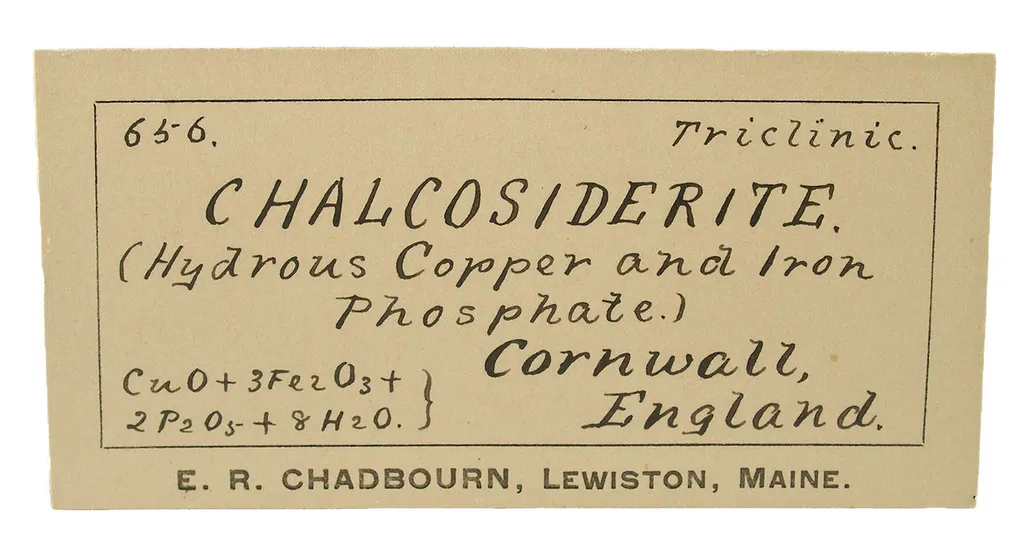 656. Triclinic.
CHALCOSIDERITE.
(Hydrous Copper and Iron
Phosphate.)
Cornwall,
England.
CuO + 3Fe2O3 +
2P2O5 + 8H2O. }
E. R. CHADBOURN, LEWISTON, MAINE.